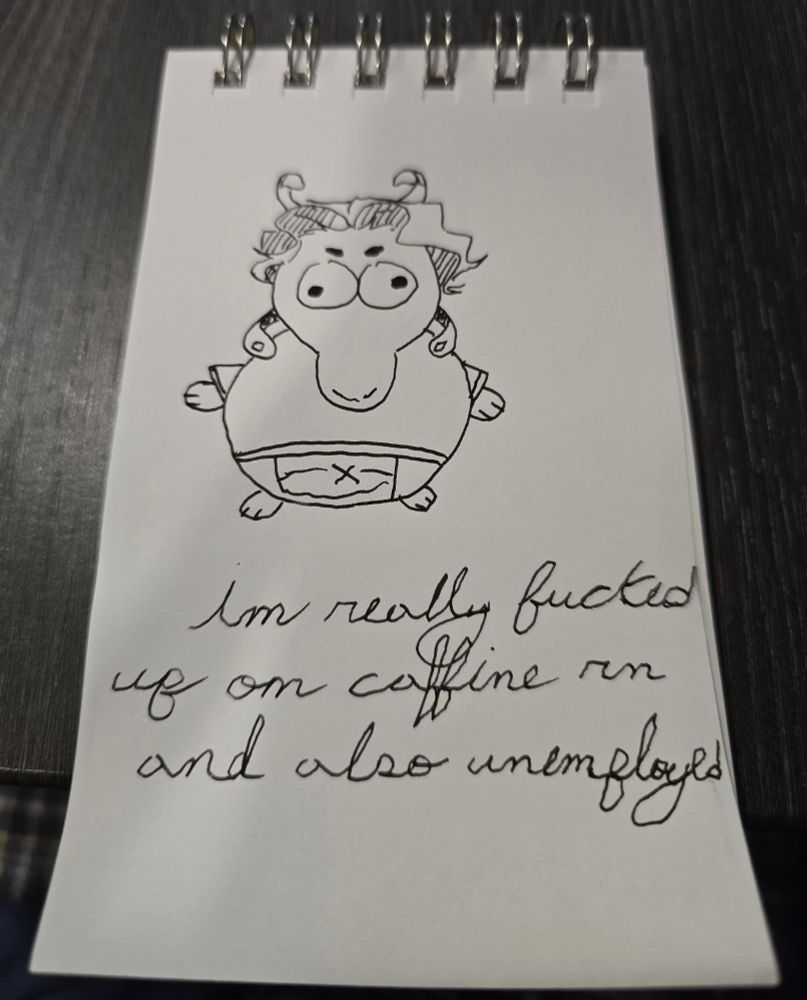 im really fucked
up on caffine rn
and also unemployed